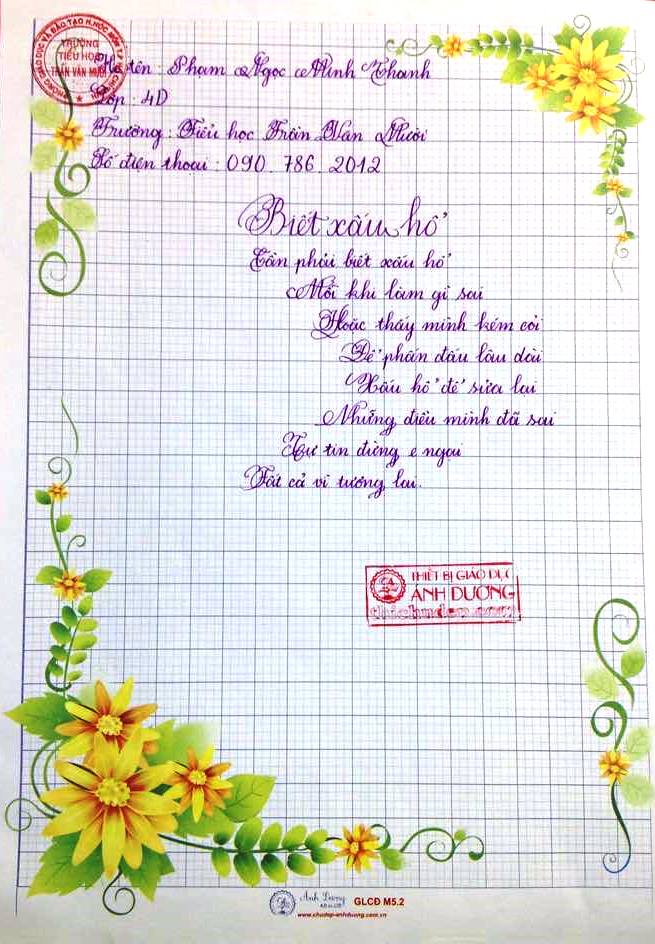 PHÒNG GIÁO DỤC VÀ ĐÀO TẠO H.HÓC MÔN
TRƯỜNG
TIỂU HỌC
TRẦN VĂN MƯỜI
Họ tên : Phạm Ngọc Minh Thanh
Lớp : 4D
Trường : Tiểu học Trần Văn Mười
Số điện thoại : 090. 786. 2012
Biết xấu hổ
Cần phải biết xấu hổ
Mỗi khi làm gì sai
Hoặc thấy mình kém cỏi
Để phấn đấu lâu dài
Xấu hổ để sửa lại
Những điều mình đã sai
Tự tin đừng e ngại
Tất cả vì tương lai.
THIẾT BỊ GIÁO DỤC
ÁNH DƯƠNG
Ánh Dương
GLCĐ M5.2
www.chudep-anhduong.com.vn